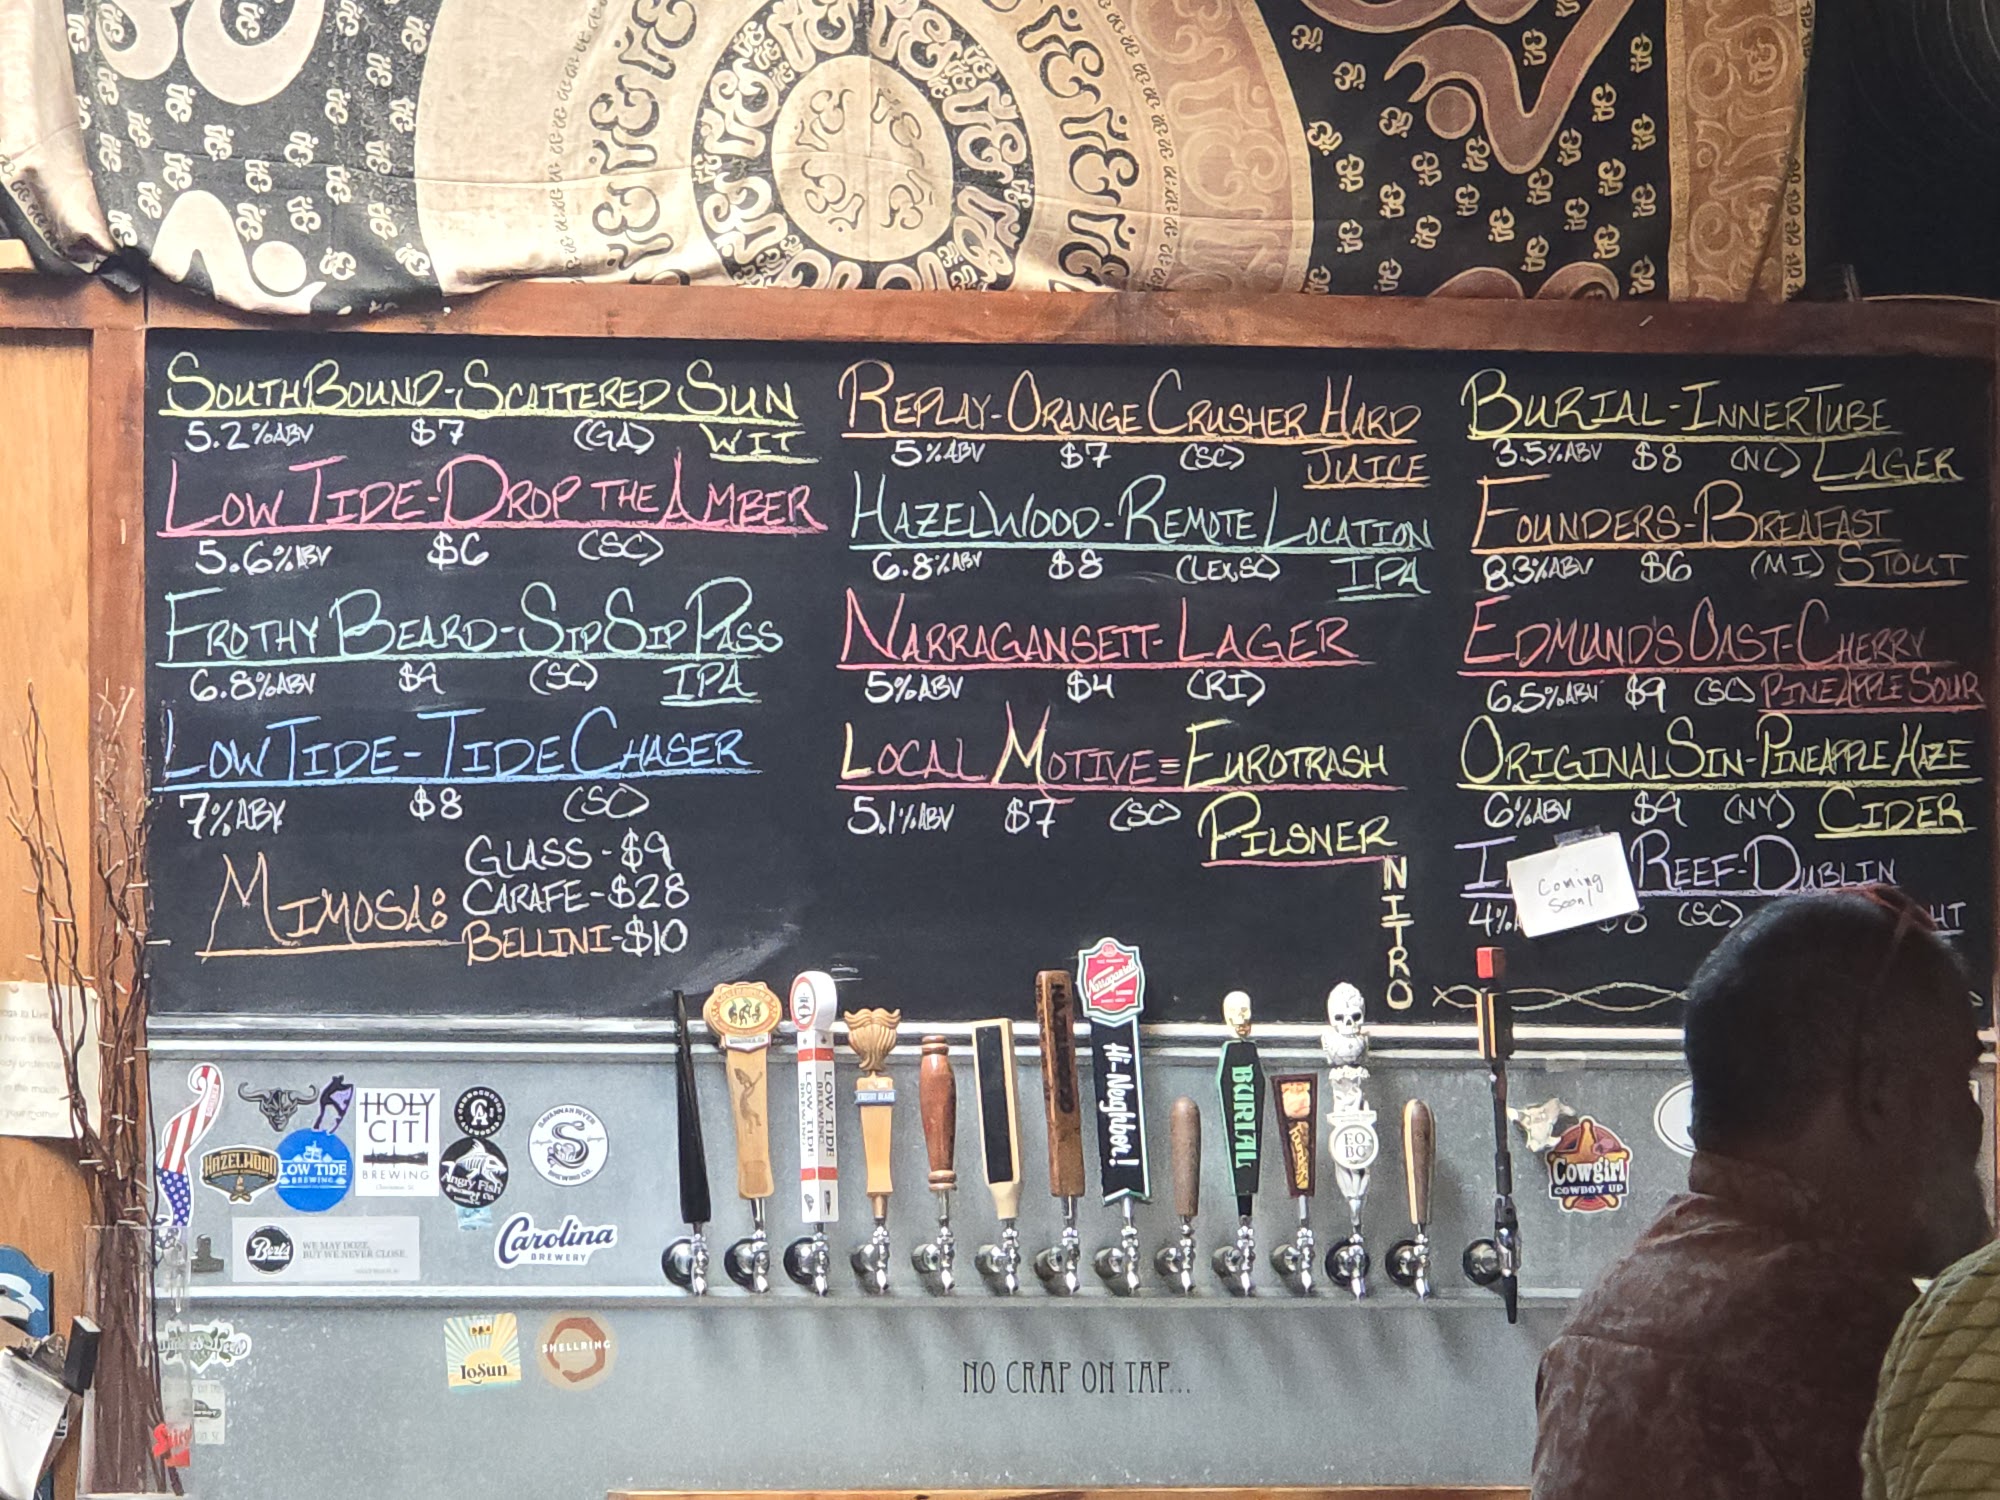 SOUTHBOUND-SCATTERED SUN
5.2%ABV $7 (GA) WIT
LOW TIDE-DROP THE AMBER
5.6%ABV $6 (SC)
FROTHY BEARD-SIP SIP PASS
6.8%ABV $9 (SC) IPA
LOW TIDE-TIDE CHASER
7%ABV $8 (SC)
MIMOSA: GLASS-$9
CARAFE-$28
BELLINI-$10
REPLAY-ORANGE CRUSHER HARD
5%ABV $7 (SC) JUICE
HAZELWOOD-REMOTE LOCATION
6.8%ABV $8 (LEX,SC) IPA
NARRAGANSETT-LAGER
5%ABV $4 (RI)
LOCAL MOTIVE=EUROTRASH
5.1%ABV $7 (SC) PILSNER
BURIAL-INNERTUBE
3.5%ABV $8 (NC) LAGER
FOUNDERS-BREAFAST
8.3%ABV $6 (MI) STOUT
EDMUND'S OAST-CHERRY
6.5%ABV $9 (SC) PINEAPPLE SOUR
ORIGINAL SIN-PINEAPPLE HAZE
6%ABV $9 (NY) CIDER
NITRO
REEF-DUBLIN
4% (SC) HT
Coming
Soon!
Narragansett
Hi-Neighbor!
LOW TIDE
BREWING
BURIAL
Founders
EO
BC
HOLY
CITY
BREWING
HAZELWOOD
LOW TIDE
BREWING
Angry Fish
SAVANNAH RIVER
BREWING CO.
Carolina
BREWERY
Bert's
WE MAY DOZE,
BUT WE NEVER CLOSE.
Cowgirl
COWBOY UP
LoSun
SHELLRING
NO CRAP ON TAP...